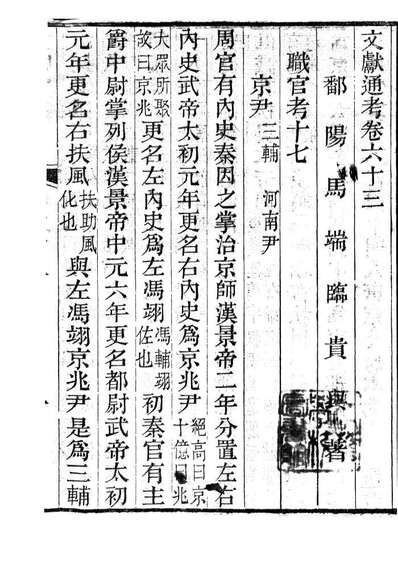 文獻通考卷六十三
鄱陽馬端臨貴與著
職官考十七
京尹 三輔 河南尹
周官有內史秦因之掌治京師漢景帝二年分置左右
內史武帝太初元年更名右內史爲京兆尹 絕高曰京 十億曰兆
大眾所聚 故曰京兆 更名左內史爲左馮翊 馮輔翊 佐也 初秦官有主
爵中尉掌列侯漢景帝中元六年更名都尉武帝太初
元年更名右扶風 扶助風 化也 與左馮翊京兆尹是爲三輔